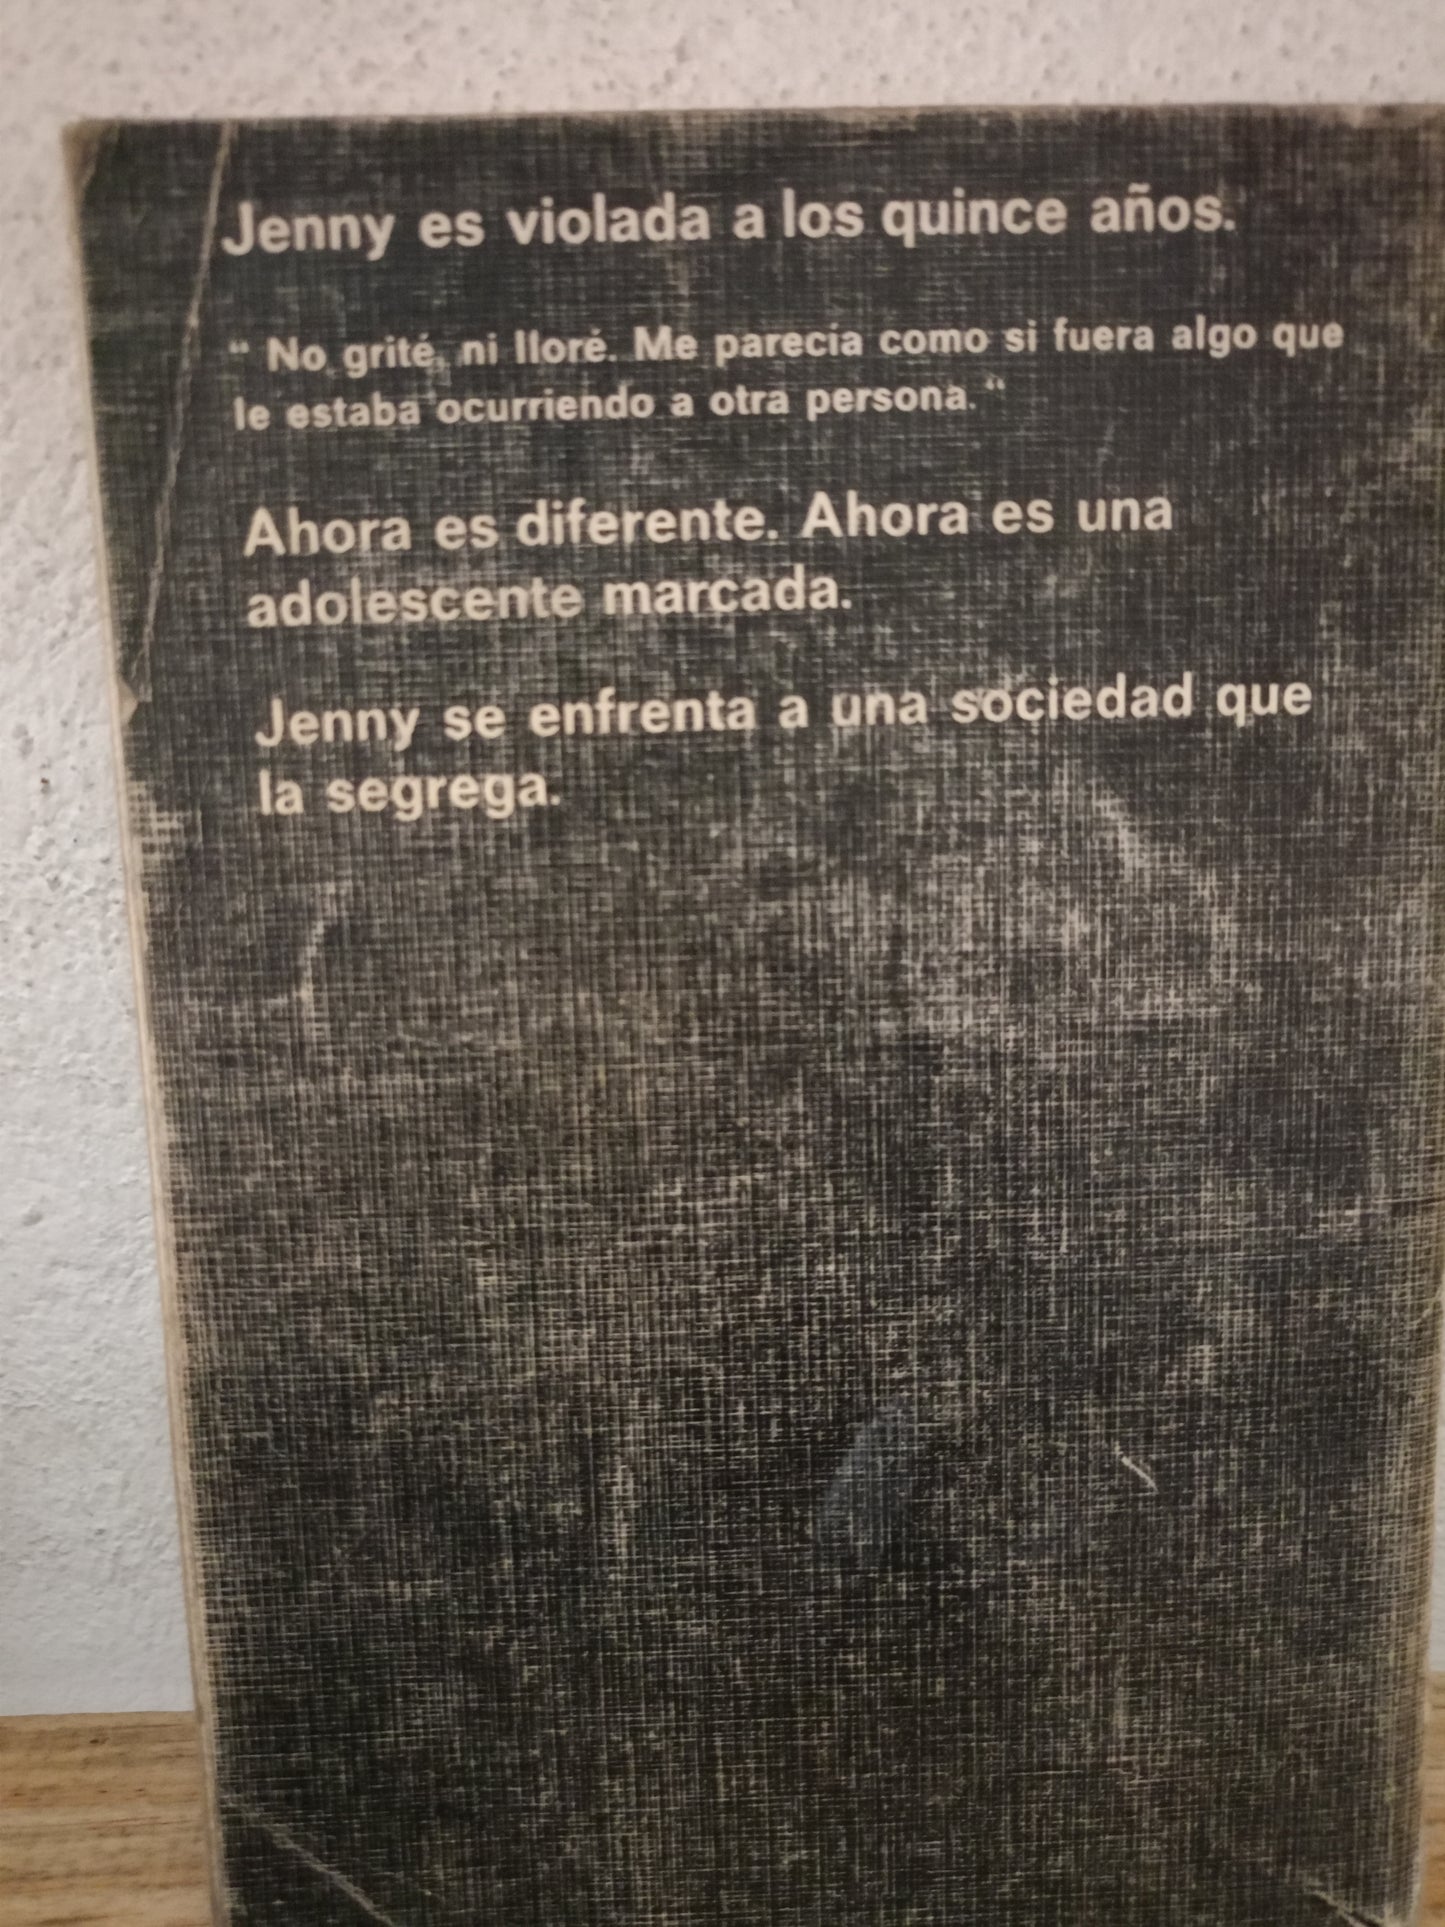 Jenny es violada a los quince años.
“ No grité, ni lloré. Me parecía como si fuera algo que
le estaba ocurriendo a otra persona. “
Ahora es diferente. Ahora es una
adolescente marcada.
Jenny se enfrenta a una sociedad que
la segrega.